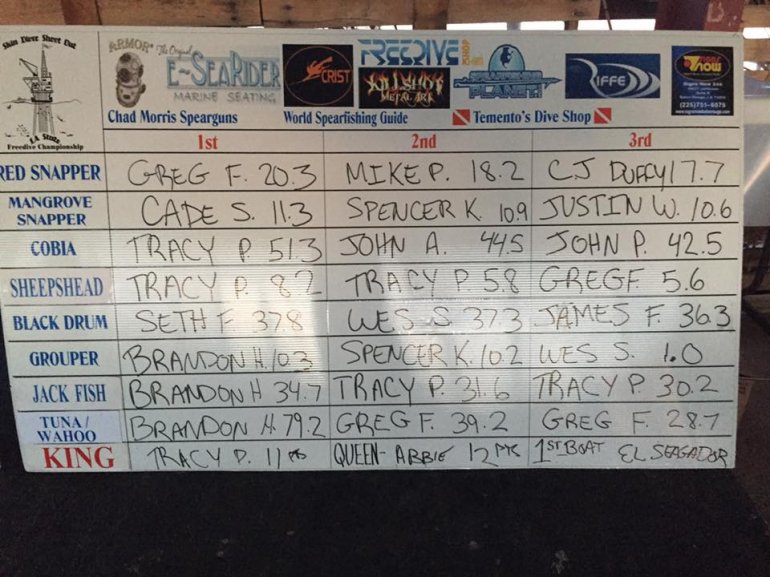 Skin Dive Shoot Out
LA State
Freedive Championship
ARMOR The Original
E-SEARIDER
MARINE SEATING
CRIST
FREEDIVE SHOP
KILLSHOT
METAL ART
SPEARFISHING
PLANET!
RIFFE
SIGNS
now
Signs Now 356
(225)751-6075
Chad Morris Spearguns World Spearfishing Guide Temento's Dive Shop
1st 2nd 3rd
RED SNAPPER GREG F. 20.3 MIKE P. 18.2 CJ DUFFY 17.7
MANGROVE SNAPPER CADE S. 11.3 SPENCER K. 10.9 JUSTIN W. 10.6
COBIA TRACY P. 51.3 JOHN A. 44.5 JOHN P. 42.5
SHEEPSHEAD TRACY P. 8.2 TRACY P. 5.8 GREG F. 5.6
BLACK DRUM SETH F 37.8 WES S. 37.3 JAMES F. 36.3
GROUPER BRANDON H. 10.3 SPENCER K. 10.2 WES S. 1.0
JACK FISH BRANDON H 34.7 TRACY P. 31.6 TRACY P. 30.2
TUNA/ WAHOO BRANDON H. 79.2 GREG F. 39.2 GREG F. 28.7
KING TRACY P. 11 PTS QUEEN- ABBIE 12 PTS 1ST BOAT EL SEAGADOR